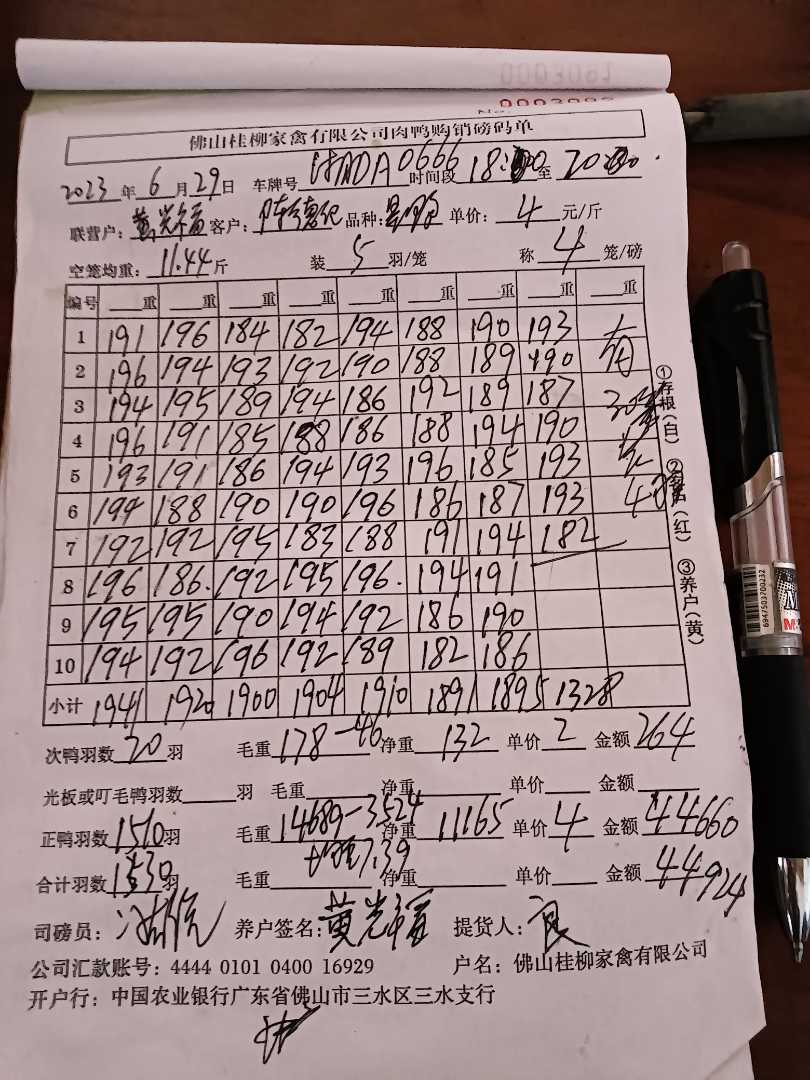 0003091
佛山桂柳家禽有限公司肉鸭购销磅码单
2023年6月29日 车牌号 ADA0666 时间段 18:00 至 20:00
联营户: 黄光福 客户: 陈德 品种: 单价: 4 元/斤
空笼均重: 11.44 斤 装 5 羽/笼 称 4 笼/磅
编号 重 重 重 重 重 重 重 重 重
1 191 196 184 182 194 188 190 193
2 196 194 193 192 190 188 189 190
3 194 195 189 194 186 192 189 187
4 196 191 185 188 186 188 194 190
5 193 191 186 194 193 196 185 193
6 194 188 190 190 196 186 187 193
7 192 192 195 183 188 191 194 182
8 196 186 192 195 196 194 191
9 195 195 190 194 192 186 190
10 194 192 196 192 189 182 186
小计 1941 1920 1900 1904 1910 1891 1895 1328
①存根(白) ②客户(红) ③养户(黄)
次鸭羽数 20 羽 毛重 178-46 净重 132 单价 2 金额 264
光板或叮毛鸭羽数 羽 毛重 净重 单价 金额
正鸭羽数 1510 羽 毛重 14689-3524 净重 11165 单价 4 金额 44660
均重7.39
合计羽数 1530 羽 毛重 净重 单价 金额 44924
司磅员: 养户签名: 黄光福 提货人: 良
公司汇款账号: 4444 0101 0400 16929 户名: 佛山桂柳家禽有限公司
开户行: 中国农业银行广东省佛山市三水区三水支行
6947503700232